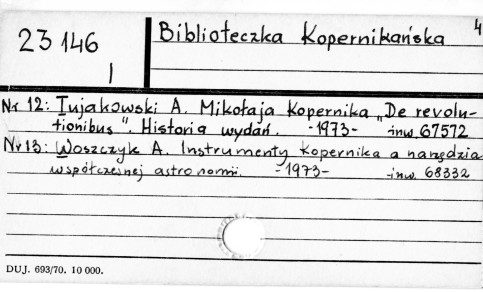 23 146
I
Biblioteczka Kopernikańska
4
Nr 12: Tujakowski A. Mikołaja Kopernika „De revolu-
tionibus". Historia wydań. -1973- inw. 67572
Nr 13: Woszczyk A. Instrumenty Kopernika a narzędzia
współczesnej astronomii. -1973- inw. 68332
DUJ. 693/70. 10 000.